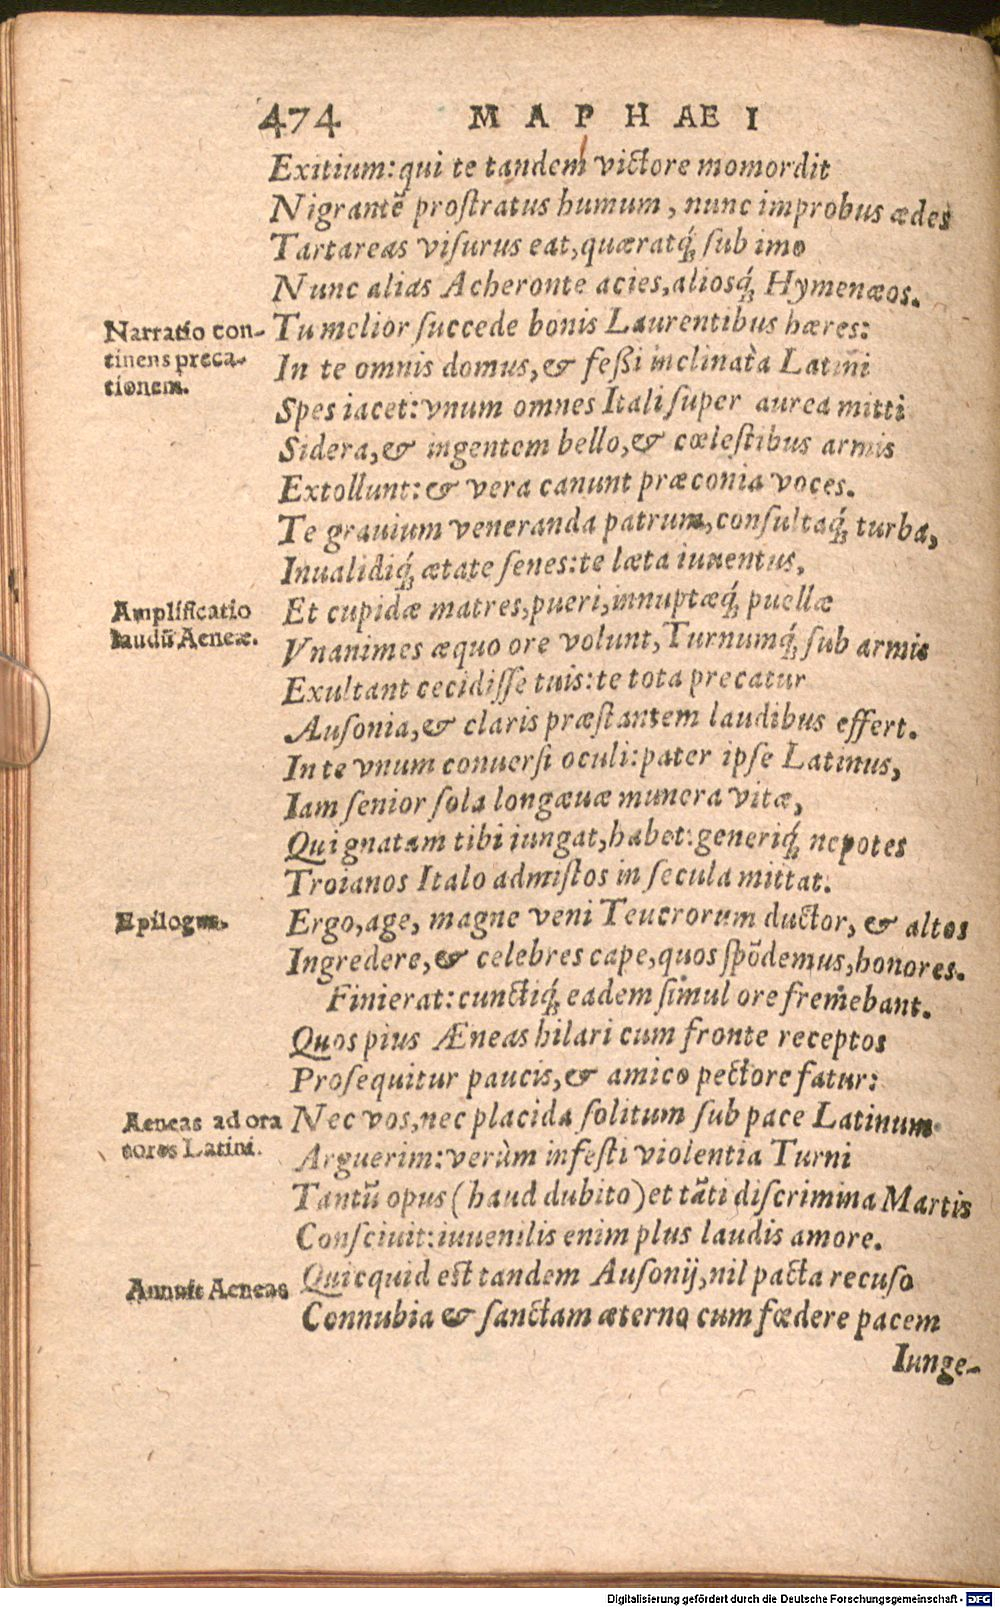 474 MAPHAEI
Exitium: qui te tandem victore momordit
Nigrantẽ proſtratus humum, nunc improbus ædes
Tartareas viſurus eat, quæratq́; ſub imo
Nunc alias Acheronte acies, alioſq́; Hymenæos.
Narratio con-
tinens preca-
tionem.
Tu melior ſuccede bonis Laurentibus hæres:
In te omnis domus, & feßi inclinata Latini
Spes iacet: vnum omnes Itali ſuper aurea mitti
Sidera, & ingentem bello, & cœleſtibus armis
Extollunt: & vera canunt præconia voces.
Te grauium veneranda patrum, conſultaq́; turba,
Inualidiq́; ætate ſenes: te læta iuuentus,
Amplificatio
laudũ Aeneæ.
Et cupidæ matres, pueri, innuptæq́; puellæ
Vnanimes æquo ore volunt, Turnumq́; ſub armis
Exultant cecidiſſe tuis: te tota precatur
Auſonia, & claris præſtantem laudibus effert.
In te vnum conuerſi oculi: pater ipſe Latinus,
Iam ſenior ſola longæuæ munera vitæ,
Qui gnatam tibi iungat, habet: generiq́; nepotes
Troianos Italo admiſtos in ſecula mittat.
Epilogus.
Ergo, age, magne veni Teucrorum ductor, & altos
Ingredere, & celebres cape, quos ſpõdemus, honores.
Finierat: cunctiq́; eadem ſimul ore fremebant.
Quos pius Æneas hilari cum fronte receptos
Proſequitur paucis, & amico pectore fatur:
Aeneas ad ora
tores Latini.
Nec vos, nec placida ſolitum ſub pace Latinum
Arguerim: verùm infeſti violentia Turni
Tantũ opus (haud dubito) et tãti diſcrimina Martis
Conſciuit: iuuenilis enim plus laudis amore.
Annuit Aeneas
Quicquid est tandem Auſonij, nil pacta recuſo
Connubia & ſanctam æterno cum fœdere pacem
Iunge-
Digitalisierung gefördert durch die Deutsche Forschungsgemeinschaft - DFG